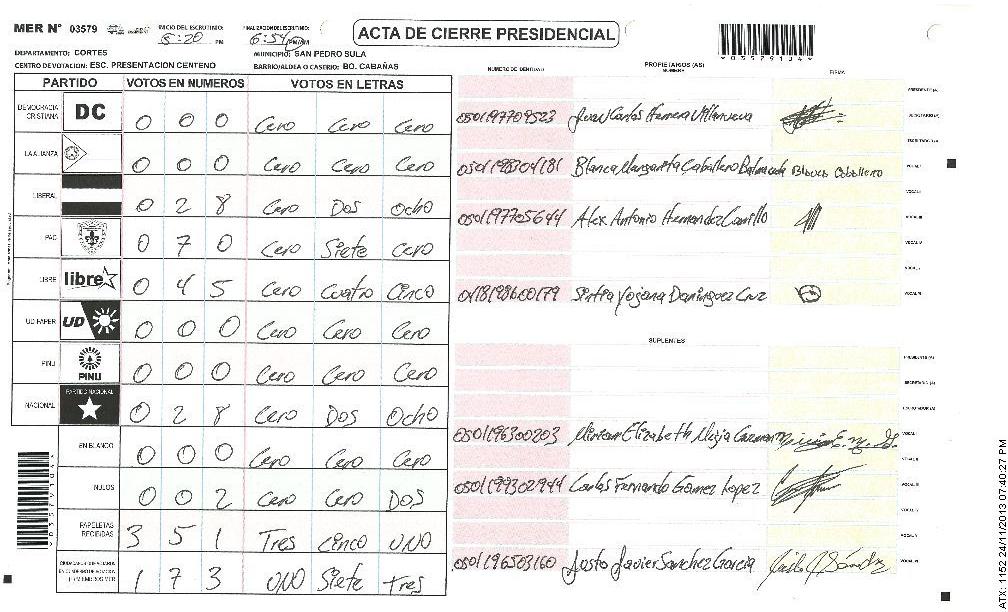 MER N° 03579 INICIO DEL ESCRUTINIO: 5:20 PM FINALIZACION DEL ESCRUTINIO: 6:54 PM/AM
ACTA DE CIERRE PRESIDENCIAL
DEPARTAMENTO: CORTES MUNICIPIO: SAN PEDRO SULA
CENTRO DE VOTACION: ESC. PRESENTACION CENTENO BARRIO/ALDEA O CASERIO: BO. CABAÑAS
PARTIDO VOTOS EN NUMEROS VOTOS EN LETRAS
DEMOCRACIA CRISTIANA DC 0 0 0 Cero Cero Cero
LA ALIANZA 0 0 0 Cero Cero Cero
LIBERAL 0 2 8 Cero Dos Ocho
PAC 0 7 0 Cero Siete Cero
LIBRE libre 0 4 5 Cero Cuatro Cinco
UD FAPER UD 0 0 0 Cero Cero Cero
PINU PINU 0 0 0 Cero Cero Cero
NACIONAL PARTIDO NACIONAL 0 2 8 Cero Dos Ocho
EN BLANCO 0 0 0 Cero Cero Cero
NULOS 0 0 2 Cero Cero DOS
PAPELETAS RECIBIDAS 3 5 1 Tres Cinco UNO
1 7 3 UNO Siete Tres
NUMERO DE IDENTIDAD PROPIETARIOS (AS) NOMBRE FIRMA
PRESIDENTE (A)
0501197709523 Juan Carlos Herrera Villanueva SECRETARIO (A)
ESCRUTADOR (A)
0501198304181 Blanca Margarita Caballero Blanca Caballero VOCAL I
VOCAL II
0501197705644 Alex Antonio Hernandez Carrillo VOCAL III
VOCAL IV
VOCAL V
0418198600179 Sintia Yojana Dominguez Cruz VOCAL VI
SUPLENTES
PRESIDENTE (A)
SECRETARIO (A)
ESCRUTADOR (A)
0501196300203 Miriam Elizabeth Mejia VOCAL I
VOCAL II
0501199302944 Carlos Fernando Gomez Lopez VOCAL III
VOCAL IV
VOCAL V
0501196503160 Justo Javier Sanchez Garcia VOCAL VI
ATX: 1152 24/11/2013 07:40:27 PM